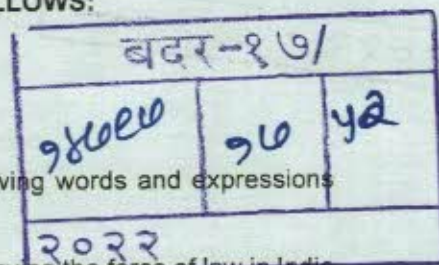 LLOWS:
बदर-१७/
१७ ५२
wing words and expressions
२०२२
the force of law in India